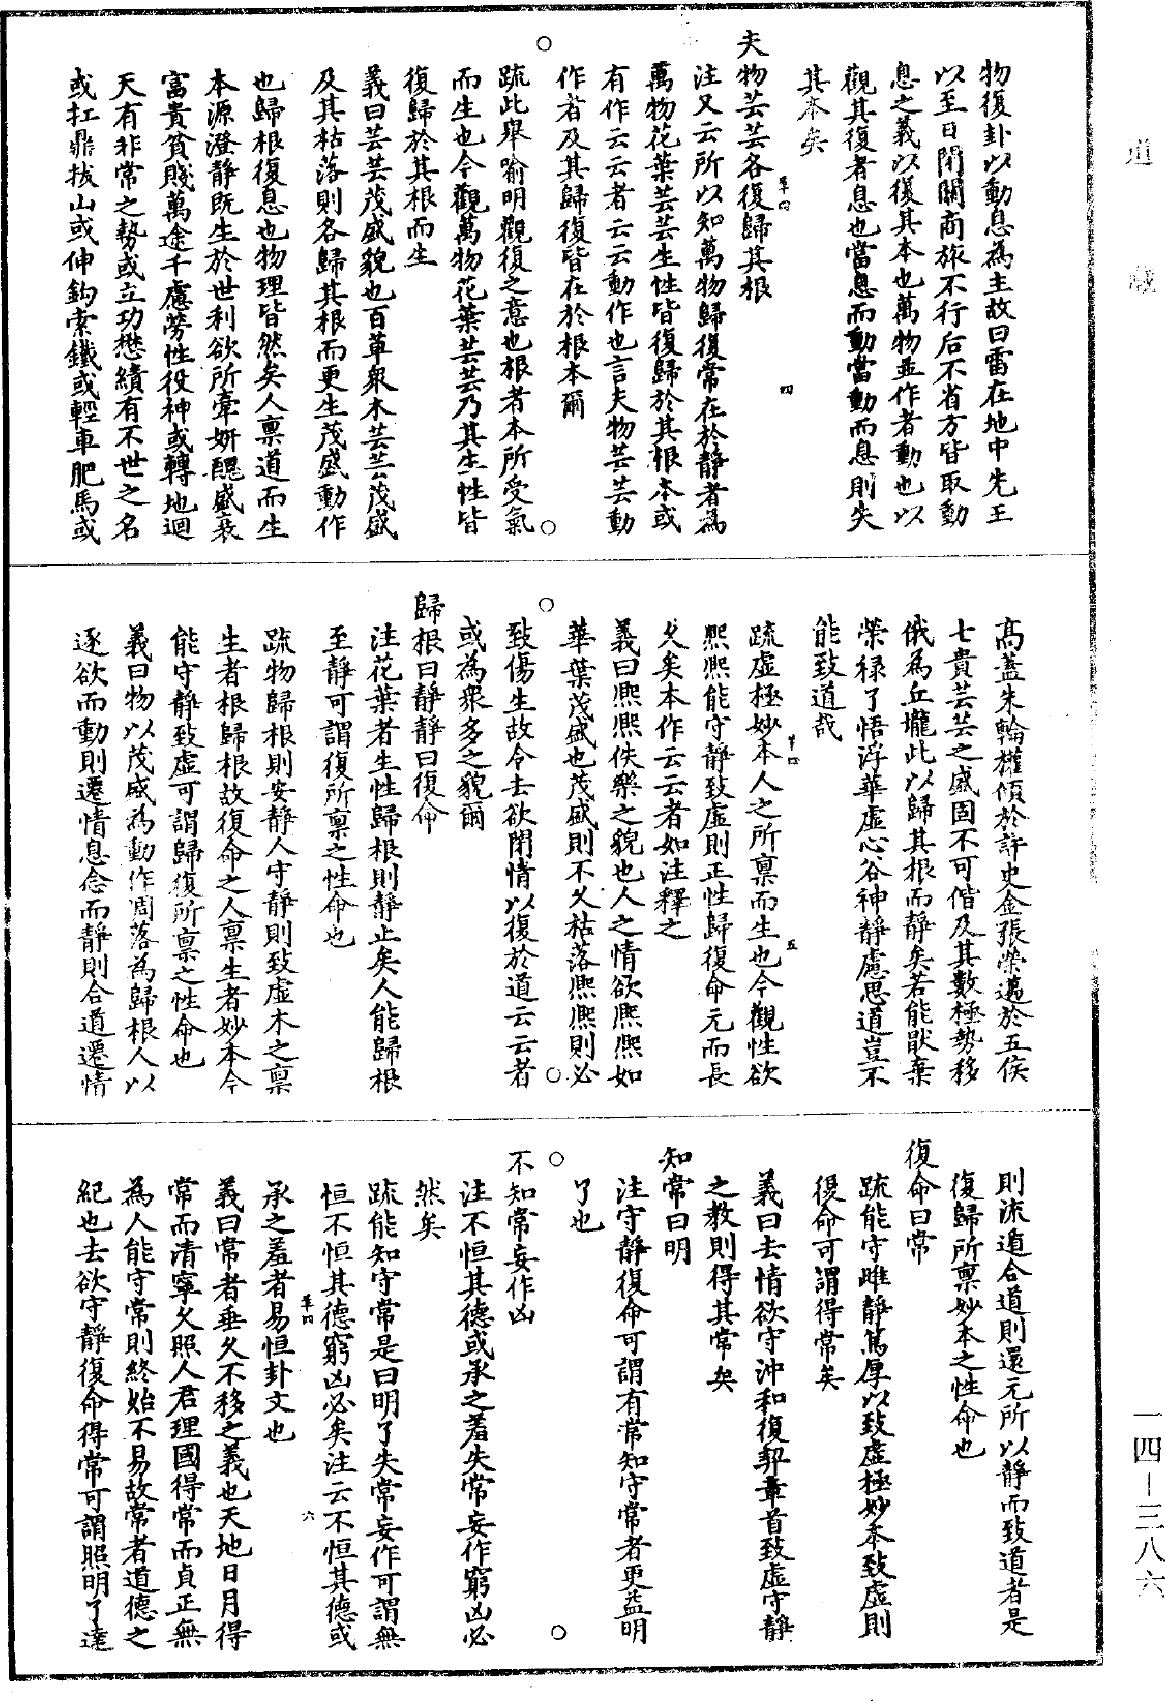 物復卦以動息為主故曰雷在地中先王
以至日閉關商旅不行后不省方皆取動
息之義以復其本也萬物並作者動也以
觀其復者息也當息而動當動而息則失
其本矣
夫物芸芸各復歸其根
注又云所以知萬物歸復常在於靜者為
萬物花葉芸芸生性皆復歸於其根本或
有作云云者云云動作也言夫物芸芸動
作者及其歸復皆在於根本爾
疏此舉喻明觀復之意也根者本所受氣
而生也今觀萬物花葉芸芸乃其生性皆
復歸於其根而生
義曰芸芸茂盛貌也百草眾木芸芸茂盛
及其枯落則各歸其根而更生茂盛動作
也歸根復息也物理皆然矣人禀道而生
本源澄靜既生於世利欲所牽妍醜盛衰
富貴貧賤萬途千慮勞性役神或轉地迴
天有非常之勢或立功懋績有不世之名
或扛鼎拔山或伸鈎索鐵或輕車肥馬或
高蓋朱輪權傾於許史金張榮邁於五侯
七貴芸芸之盛固不可偕及其數極勢移
俄為丘壠此以歸其根而靜矣若能厭棄
榮祿了悟浮華虛心谷神靜慮思道豈不
能致道哉
疏虛極妙本人之所禀而生也今觀性欲
熙熙能守靜致虛則正性歸復命元而長
久矣本作云云者如注釋之
義曰熙熙佚樂之貌也人之情欲熙熙如
華葉茂盛也茂盛則不久枯落熙熙則必
致傷生故令去欲閉情以復於道云云者
或為眾多之貌爾
歸根曰靜靜曰復命
注花葉者生性歸根則靜止矣人能歸根
至靜可謂復所禀之性命也
疏物歸根則安靜人守靜則致虛木之禀
生者根歸根故復命之人禀生者妙本今
能守靜致虛可謂歸復所禀之性命也
義曰物以茂盛為動作凋落為歸根人以
逐欲而動則遷情息念而靜則合道遷情
則流遁合道則還元所以靜而致道者是
復歸所禀妙本之性命也
復命曰常
疏能守雌靜篤厚以致虛極妙本致虛則
復命可謂得常矣
義曰去情欲守沖和復契章首致虛守靜
之教則得其常矣
知常曰明
注守靜復命可謂有常知守常者更益明
了也
不知常妄作凶
注不恒其德或承之羞失常妄作窮凶必
然矣
疏能知守常是曰明了失常妄作可謂無
恒不恒其德窮凶必矣注云不恒其德或
承之羞者易恒卦文也
義曰常者垂久不移之義也天地日月得
常而清寧久照人君理國得常而貞正無
為人能守常則終始不易故常者道德之
紀也去欲守靜復命得常可謂照明了達
道藏
一四—三八六